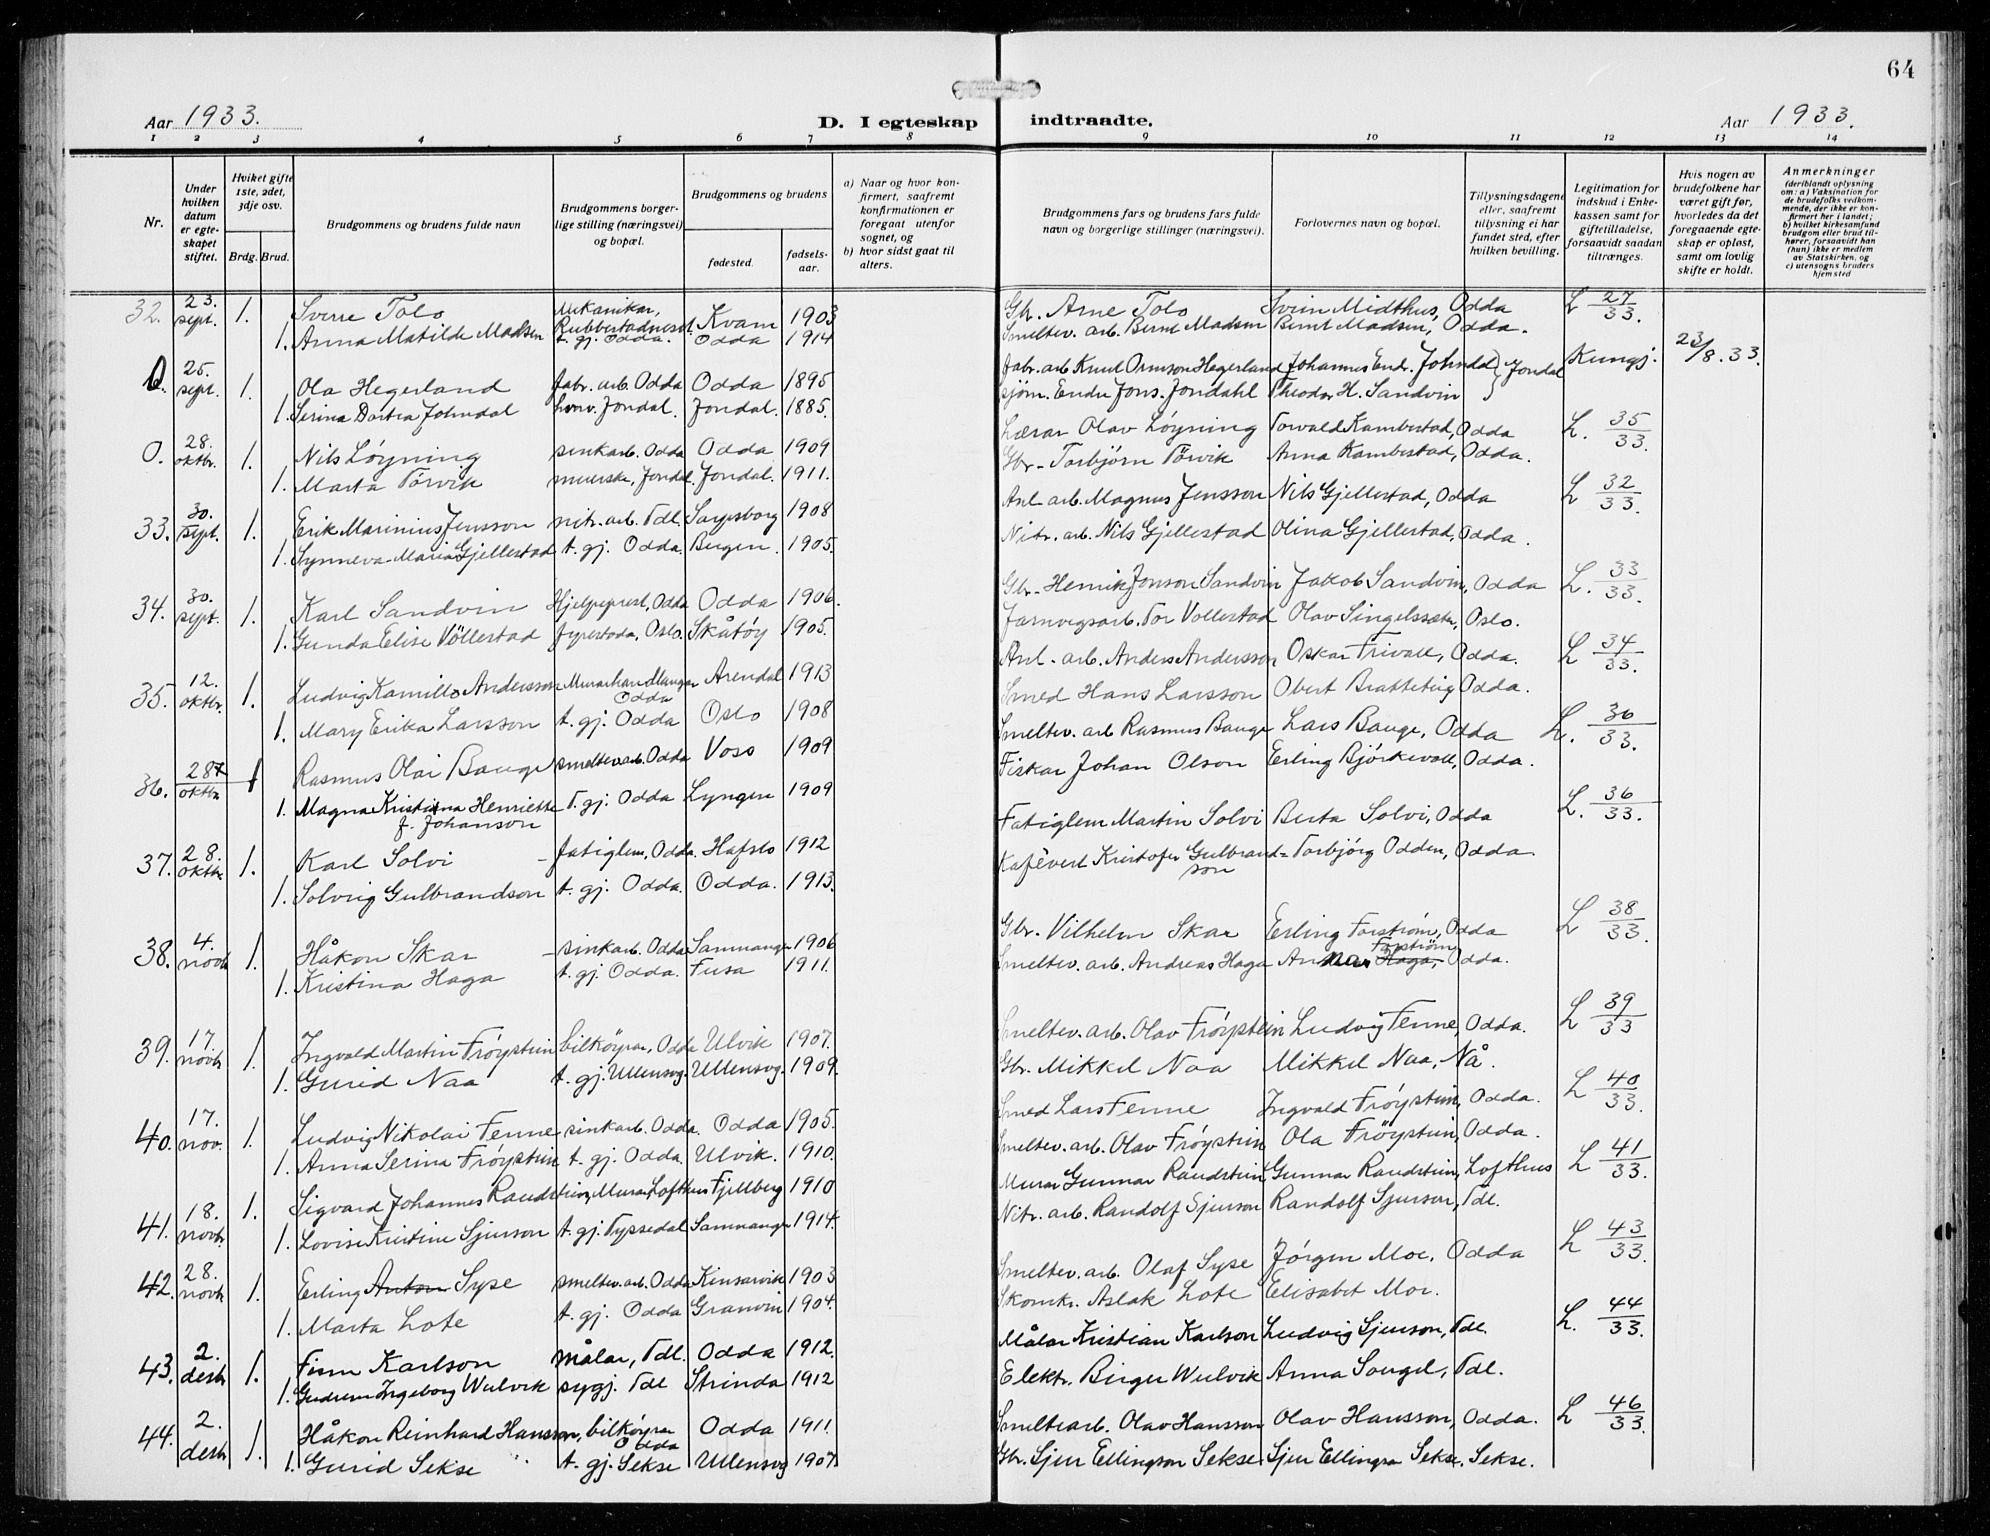 64
Aar 1933.
D. I egteskap indtraadte.
Aar 1933.
1 2 3 4 5 6 7 8 9 10 11 12 13 14
Nr.
Under hvilken datum er egteskapet stiftet.
Hviket gifte 1ste, 2det, 3dje osv.
Brdg. Brud.
Brudgommens og brudens fulde navn
Brudgommens borgerlige stilling (næringsvei) og bopæl.
Brudgommens og brudens
fødested. fødselsaar.
a) Naar og hvor konfirmert, saafremt konfirmationen er foregaat utenfor sognet, og
b) hvor sidst gaat til alters.
Brudgommens fars og brudens fars fulde navn og borgerlige stillinger (næringsvei).
Forlovernes navn og bopæl.
Tillysningsdagene eller, saafremt tillysning ei har fundet sted, efter hvilken bevilling.
Legitimation for indskud i Enkekassen samt for giftetilladelse, forsaavidt saadan tiltrænges.
Hvis nogen av brudefolkene har været gift før, hvorledes da det foregaaende egteskap er opløst, samt om lovlig skifte er holdt.
Anmerkninger
(deriblandt oplysning om: a) Vaksination for de brudefolks vedkommende, der ikke er konfirmert her i landet; b) hvilket kirkesamfund brudgom eller brud tilhører, forsaavidt han (hun) ikke er medlem av Statskirken, og c) utensogns bruders hjemsted
32. 23. sept. 1. Sverre Tolo Mekanikar, Rubbestadneset Kvam 1903 Gbr. Arne Tolo Svein Midthus, Odda L 27/33.
1. Anna Matilde Madsen t. gj. Odda. Odda 1914 Smeltev. arb. Bernt Madsen Bernt Madsen, Odda.
O. 25. sept. 1. Ola Hegerland fabr. arb. Odda Odda 1895 fabr. arb Knut Ormson Hegerland Johannes End. Johndal } Jondal Kungj. 23/8.33.
1. Serina Dortea Johndal husv. Jondal. Jondal. 1885. sjøm. Endre Jons. Jondahl Theodor H. Sandvin
O. 28. oktbr. 1. Nils Løyning sinkarb. Odda Odda 1909 Lærar Olav Løyning Torvald Kambestad, Odda L. 35/33.
1. Marta Tørvik meierske, Jondal. Jondal. 1911. Gbr. Torbjørn Tørvik Anna Kambestad, Odda.
33. 30. sept. 1. Erik Marinius Jensson nitr. arb. Tdl. Sarpsborg 1908 Anl. arb. Magnus Jensson Nils Gjellestad, Odda L 32/33.
1. Synneva Maria Gjellestad t. gj. Odda. Bergen. 1905. Nitr. arb. Nils Gjellestad Olina Gjellestad, Odda.
34. 30. sept. 1. Karl Sandvin Hjelpeprest, Odda Odda 1906. Gbr. Henrik Jonson Sandvin Jakob Sandvin, Odda L. 33/33.
1. Gunda Elise Völlestad Oslo. Skåtøy 1905. Jarnvegsarb. Tor Vollestad Olav Oslo.
35. 12. oktbr. 1. Ludvig Kamillo Andersson Murarhandlangar Odda Arendal 1913 Anl. arb. Anders Andersson Oskar Trivall, Odda. L 34/33.
1. Mary Erika Larsson t. gj. Odda Oslo 1908 Smed Hans Larsson Obert Brattebeig Odda.
36. 28 oktbr. 1 Rasmus Olai Bauge smeltev. arb. Odda Voss 1909 Smeltev. arb Rasmus Bauge Lars Bauge, Odda L. 36/33.
1. Magna Kristina Henriette f. Johanson T. gj. Odda Lyngen 1909 Fiskar Johan Olson Erling Bjørkevoll, Odda.
37. 28. oktbr. 1. Karl Solvi Fatiglem, Odda. Hafslo 1912 Fatiglem Martin Solvi Berta Solvi, Odda L. 36/33.
1. Solvig Gulbrandson t. gj. Odda. Odda. 1913. Kafévert Kristofer Gulbrand=son Torbjørg Odden, Odda.
38. 4. novb. 1. Håkon Skar sinkarb. Odda Samnanger 1906 Gbr. Vilhelm Skar Erling Forstrøm, Odda L 38/33.
1. Kristina Haga t. gj. Odda. Fusa 1911. Smeltev. arb. Andreas Haga Anna Haga, Forstrøm Odda.
39. 17. novb. 1. Ingvald Martin Frøystein bilkøyrar, Odda Ulvik 1907. Smeltev. arb. Olav Frøystein Ludvig Tenne, Odda. L 39/33
1. Gurid Naa t. gj. Ullensvg. Ullensvg. 1909. Gbr. Mikkel Naa Mikkel Naa, Nå.
40. 17. nov. 1. Ludvig Nikolai Tenne sinkarb. Odda. Odda 1905. Smed Lars Tenne Ingvald Frøystein, Odda. L 40/33.
1. Anna Serina Frøystein t. gj. Odda. Ulvik. 1910. Smeltev. arb. Olav Frøystein Ola Frøystein, Odda.
41. 18. novb. 1. Sigvard Johannes Raudstein, Murar Lofthus Fjellberg 1910 Murar Gunnar Raudstein Gunnar Raudstein, Lofthus L 41/33.
1. Lovise Kristine Sjurson t. gj. Tyssedal Samnanger 1914. Nitr. arb. Randolf Sjurson Randolf Sjurson, Tdl.
42. 28. novb. 1. Erling Anton Syse smeltev. arb. Odda Kinsarvik 1903 Smeltev. arb. Olaf Syse Jørgen Moe, Odda L 43/33.
1. Marta Lote t. gj. Odda Granvin 1904. Skomkr. Aslak Lote Elisabet Moe.
43. 2. desb. 1. Finn Karlson målar, Tdl. Odda 1912. Målar Kristian Karlson Ludvig Sjurson, Tdl. L. 44/33.
1. Gudrun Ingeborg Wulvik sygj. Tdl Strinda 1912 Elektr. Birger Wulvik Anna Tdl.
44. 2. desb. 1. Håkon Reinhard Hansson, bilkøyrar Odda Odda 1911. Smeltearb. Olav Hansson Olav Hansson, Odda. L 46/33.
1. Gurid Sekse t. gj. Sekse Ullensvg 1907. Gbr. Sjur Ellingson Sekse Sjur Ellingson Sekse. Sekse.